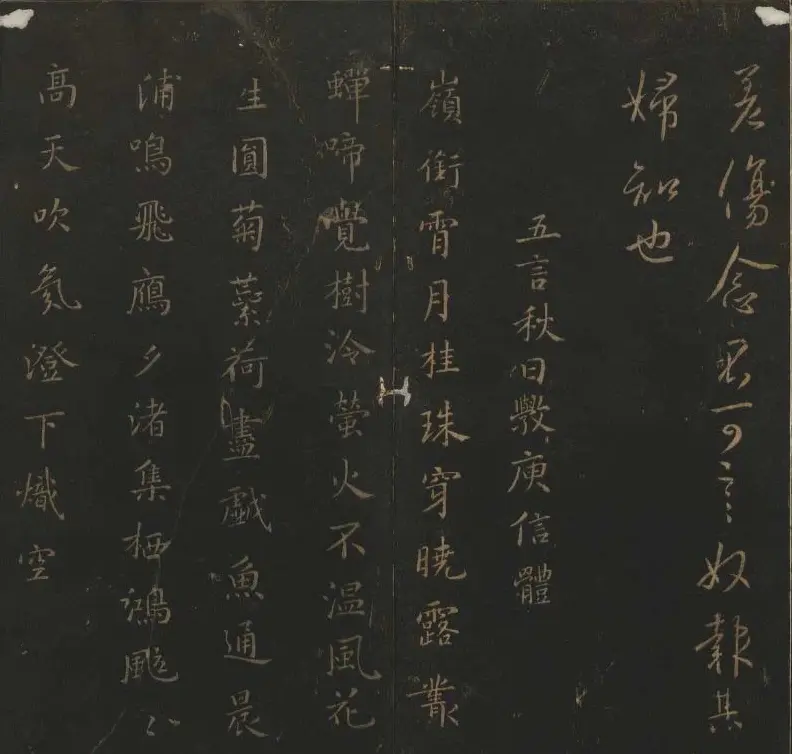 傷念可言奴報其
婦知也
五言秋日斆庾信體
嶺銜霄月桂珠穿曉露叢
蟬啼覺樹冷螢火不温風花
生圓菊蘂荷盡戲魚通晨
浦鳴飛鴈夕渚集栖鴻颯〻
高天吹氛澄下熾空